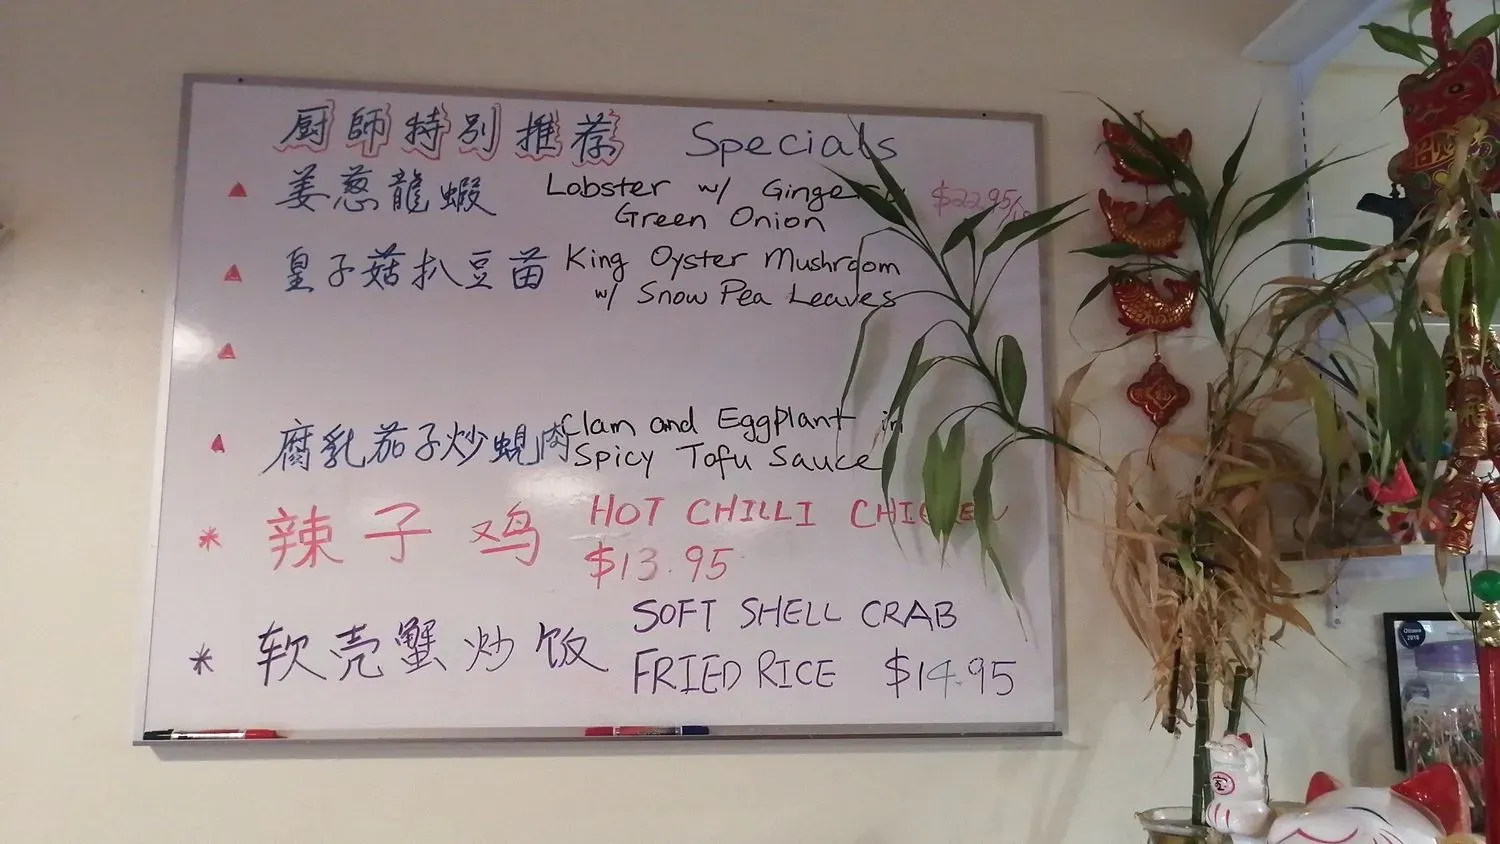 厨師特别推荐 Specials
▲ 姜葱龍蝦 Lobster w/ Ginger & $22.95/lb
Green Onion
▲ 皇子菇扒豆苗 King Oyster Mushroom
w/ Snow Pea Leaves
▲
▲ 腐乳茄子炒蜆肉 Clam and Eggplant in
Spicy Tofu Sauce
* 辣子鸡 HOT CHILLI CHICKEN
$13.95
* 软壳蟹炒饭 SOFT SHELL CRAB
FRIED RICE $14.95
Ottawa
2018